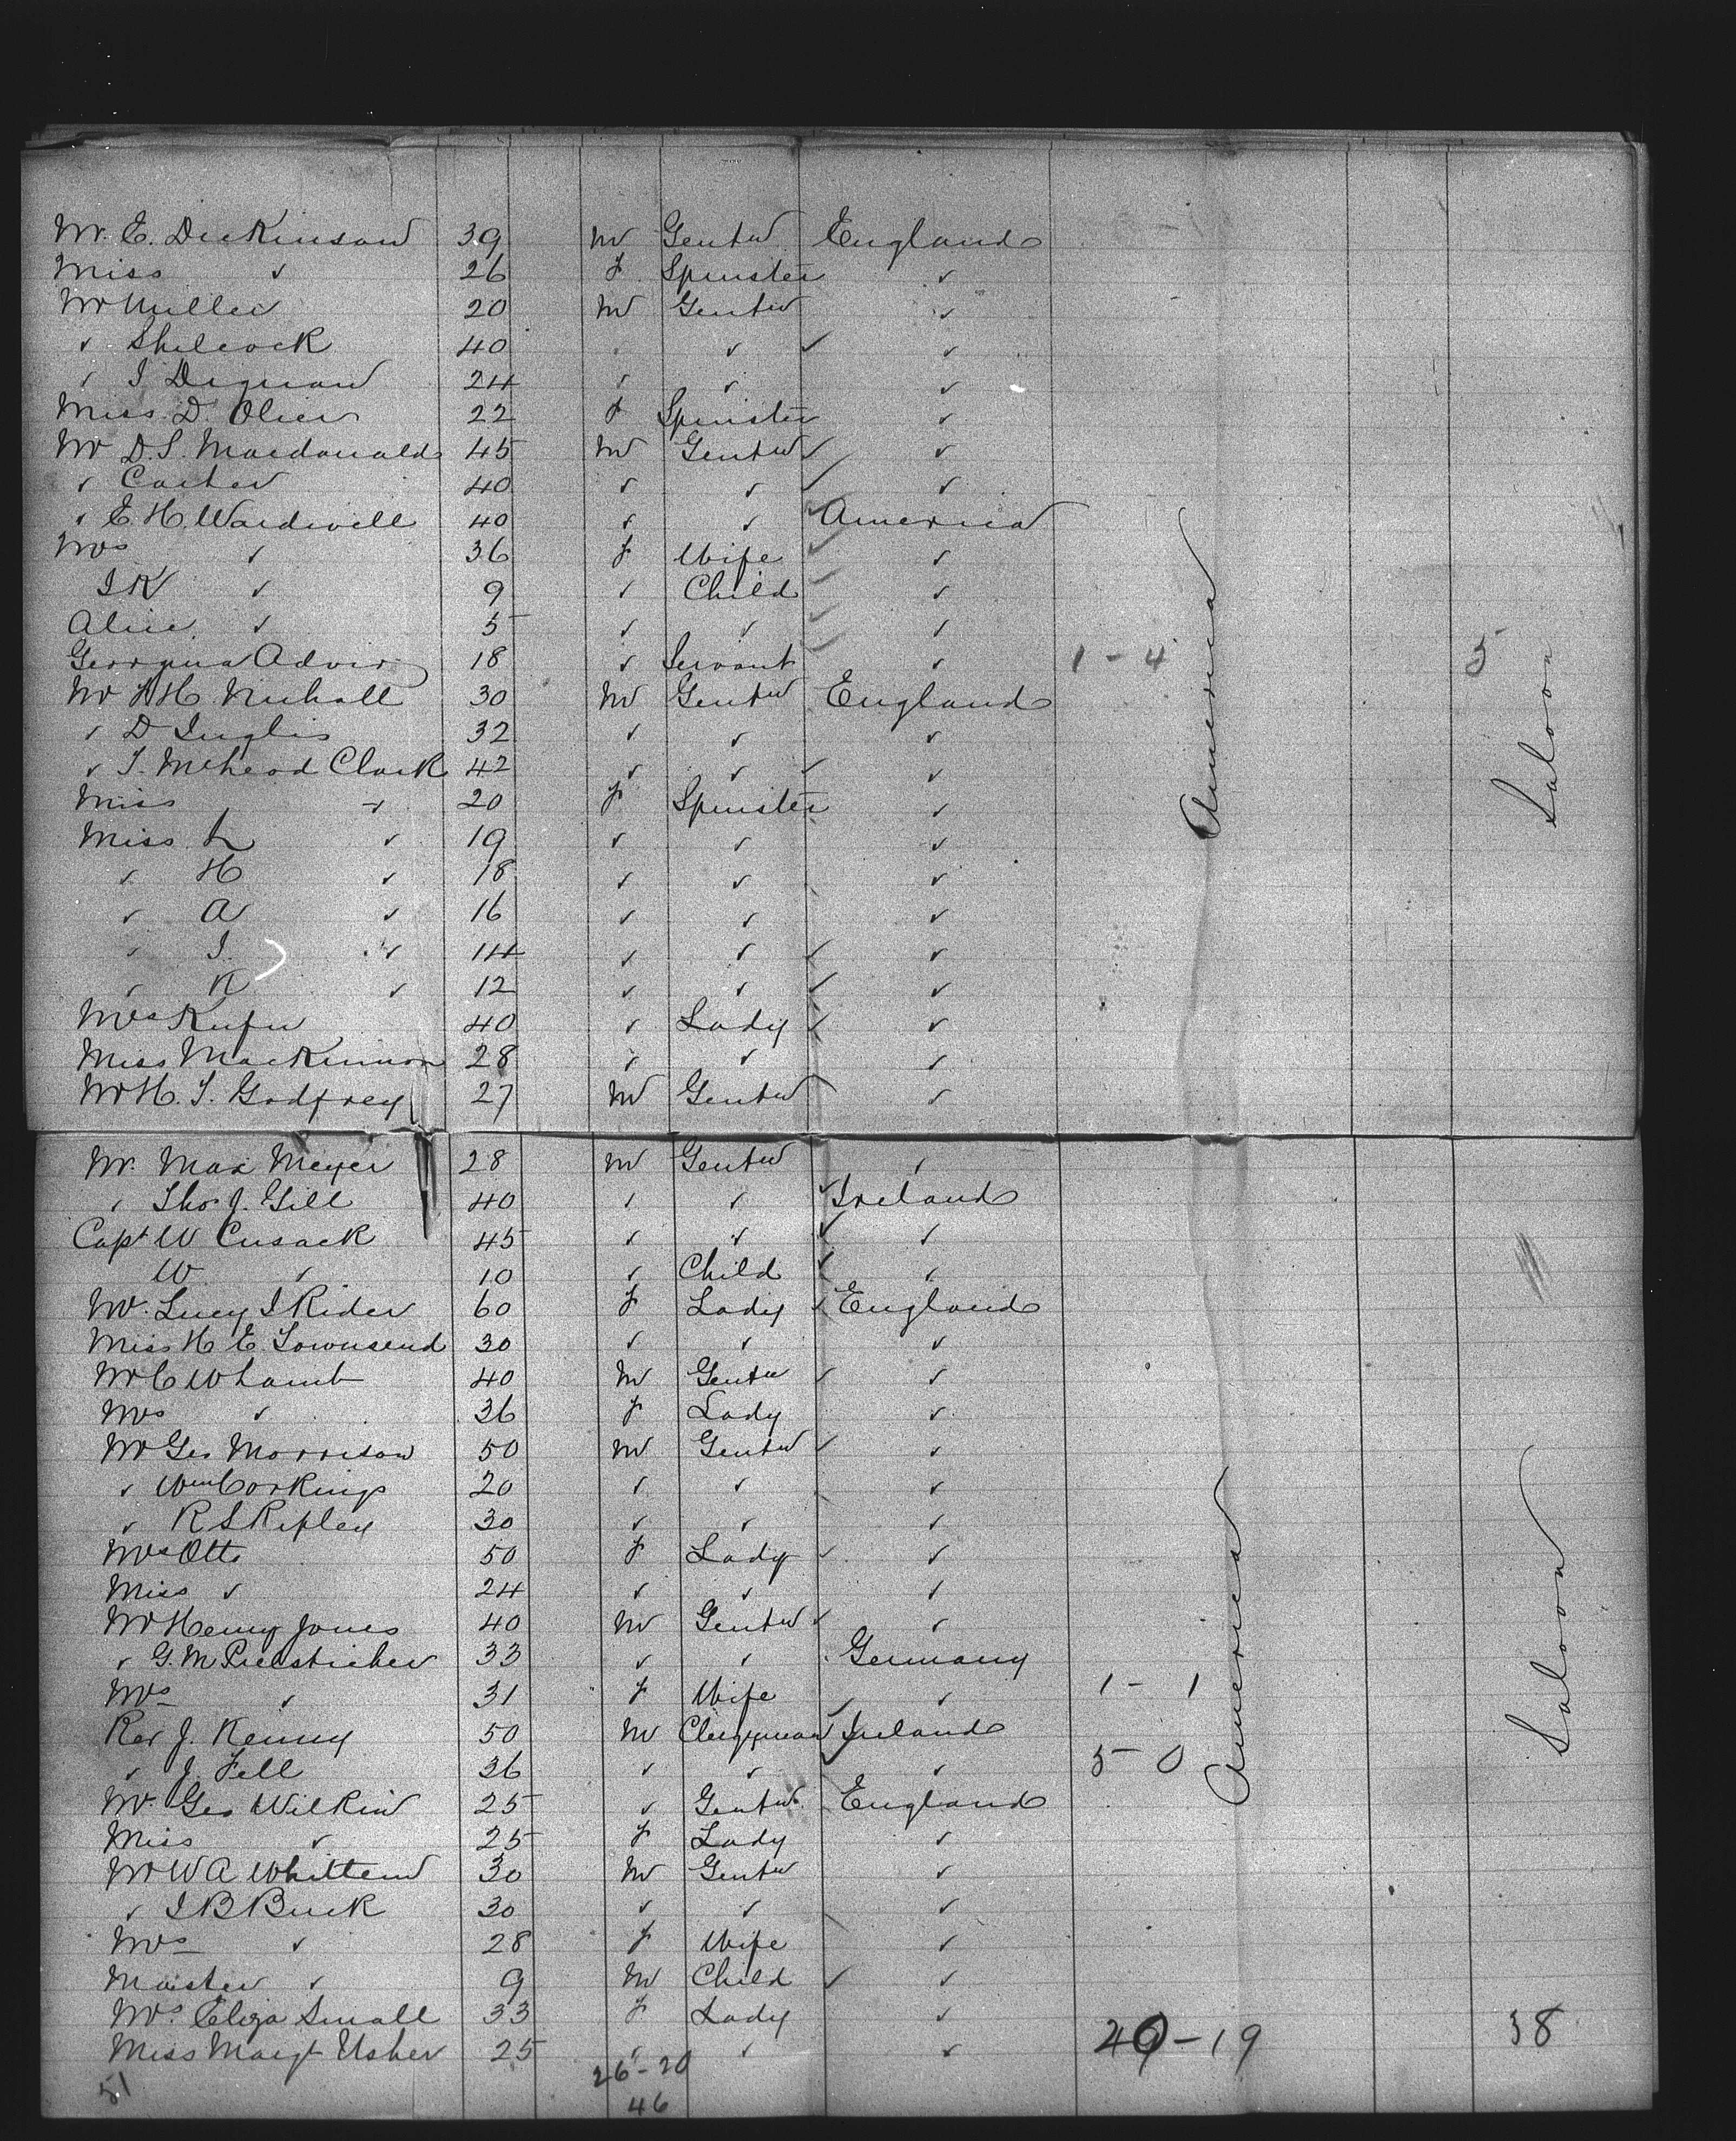 Mr. E. Dickinson 39 M Gentn England
Miss ✓ 26 F Spinster ✓
Mr Miller 20 M Gentn ✓
✓ Shilcock 40 ✓ ✓
✓ I Dignan 24 ✓ ✓ ✓
Miss D. Olier 22 F Spinster ✓
Mr D.S. Macdonald 45 M Gentn ✓
✓ Carter 40 ✓ ✓ ✓
✓ E H. Wardwell 40 ✓ ✓ America
Mrs ✓ 36 F Wife ✓
I K ✓ 9 ✓ Child ✓
Alice ✓ 5 ✓ ✓ ✓
Georgina 18 ✓ Servant ✓ 1 - 4 America 5 Saloon
Mr H. 30 M Gentn England
✓ D Inglis 32 ✓ ✓ ✓
✓ J. Clark 42 ✓ ✓ ✓
Miss ✓ 20 F Spinster ✓
Miss L ✓ 19 ✓ ✓ ✓
✓ H ✓ 18 ✓ ✓ ✓
✓ A ✓ 16 ✓ ✓ ✓
✓ I. ✓ 14 ✓ ✓ ✓
✓ K ✓ 12 ✓ ✓ ✓
Mrs 40 ✓ Lady ✓
Miss MacKinnon 28 ✓ ✓ ✓
Mr H. J. Godfrey 27 M Gentn ✓
Mr. Max Meyer 28 M Gentn ✓
✓ Thos J. Gill 40 ✓ ✓ Ireland
Capt W Cusack 45 ✓ ✓ ✓
W ✓ 10 ✓ Child ✓
Mrs. Lucy I Rider 60 F Lady England
Miss H E Townsend 30 ✓ ✓ ✓
Mr C W Lamb 40 M Gentn ✓
Mrs ✓ 36 F Lady ✓
Mr Geo Morrison 50 M Gentn ✓
✓ Wm Corkings 20 ✓ ✓ ✓
✓ R S Ripley 30 ✓ ✓ ✓
Mrs Otto 50 F Lady ✓
Miss ✓ 24 ✓ ✓ ✓
Mr Henry Jones 40 M Gentn ✓
✓ G. M 33 ✓ ✓ Germany
Mrs ✓ 31 F Wife ✓ 1 - 1 America Saloon
Rev J. Kenny 50 M Clergyman Ireland
✓ J. Fell 36 ✓ ✓ ✓ 5 - 0
Mr. Geo Wilkin 25 ✓ Gentn England
Miss ✓ 25 F Lady ✓
Mr W A Whitten 30 M Gentn ✓
✓ I B Buck 30 ✓ ✓ ✓
Mrs ✓ 28 F Wife ✓
Master ✓ 9 M Child ✓
Mrs. Eliza Small 33 F Lady ✓ - 19 38
Miss Margt Usher 25 ✓ ✓ ✓
51 26 - 20
46